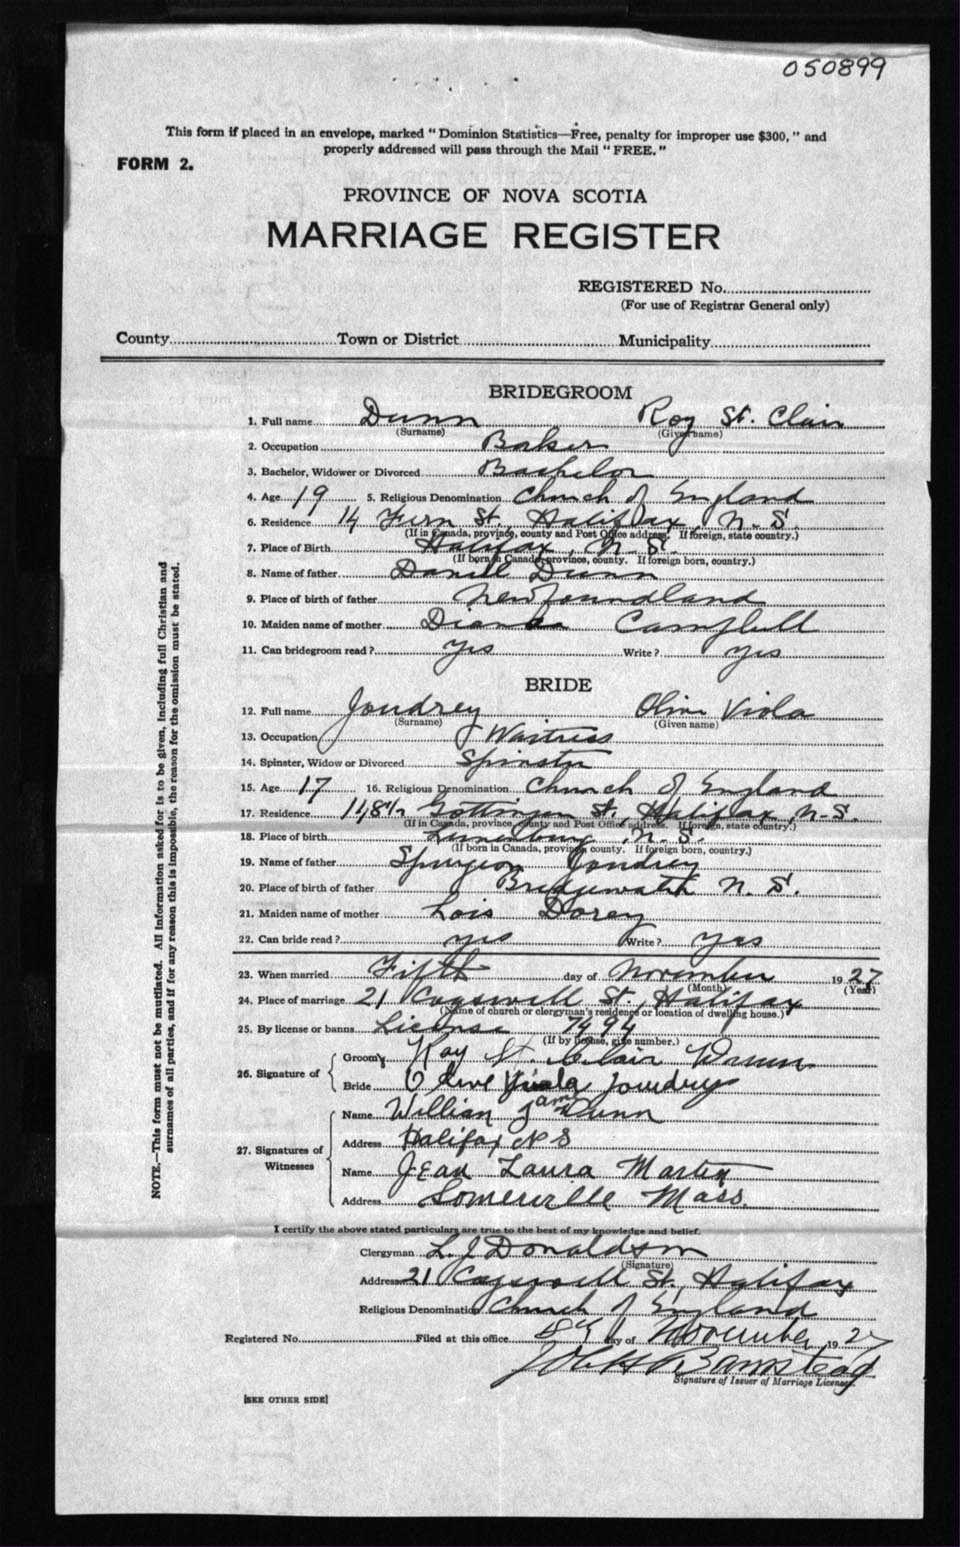 050899
This form if placed in an envelope, marked "Dominion Statistics—Free, penalty for improper use $300," and
properly addressed will pass through the Mail "FREE."
FORM 2.
PROVINCE OF NOVA SCOTIA
MARRIAGE REGISTER
REGISTERED No.
(For use of Registrar General only)
County Town or District Municipality
BRIDEGROOM
1. Full name Dunn Roy St. Clair
(Surname) (Given name)
2. Occupation Baker
3. Bachelor, Widower or Divorced Bachelor
4. Age 19 5. Religious Denomination Church of England
6. Residence 14 Fern St., Halifax, N.S.
(If in Canada, province, county and Post Office address. If foreign, state country.)
7. Place of Birth Halifax, N.S.
(If born in Canada, province, county. If foreign born, country.)
8. Name of father Daniel Dunn
9. Place of birth of father Newfoundland
10. Maiden name of mother Campbell
11. Can bridegroom read? Yes Write? Yes
BRIDE
12. Full name Joudrey Olive Viola
(Surname) (Given name)
13. Occupation Waitress
14. Spinster, Widow or Divorced Spinster
15. Age 17 16. Religious Denomination Church of England
17. Residence Gottingen St., Halifax, N.S.
(If in Canada, province, county and Post Office address. If foreign, state country.)
18. Place of birth Lunenburg, N.S.
(If born in Canada, province, county. If foreign born, country.)
19. Name of father Spurgeon Joudrey
20. Place of birth of father Bridgewater N.S.
21. Maiden name of mother Lois Dorey
22. Can bride read? yes Write? yes
23. When married Fifth day of November 1927
(Month) (Year)
24. Place of marriage 21 Cogswell St., Halifax
(Name of church or clergyman's residence or location of dwelling house.)
25. By license or banns License 7494
(If by license, give number.)
26. Signature of Groom Roy St. Clair Dunn
Bride Olive Viola Joudrey
27. Signatures of Witnesses Name William James Dunn
Address Halifax NS
Name Jean Laura Martin
Address Somerville Mass.
I certify the above stated particulars are true to the best of my knowledge and belief.
Clergyman L. J. Donaldson
(Signature)
Address 21 Cogswell St. Halifax
Religious Denomination Church of England
Registered No. Filed at this office 8th day of November, 1927
Signature of Issuer of Marriage Licenses.
[SEE OTHER SIDE]
NOTE.—This form must not be mutilated. All information asked for is to be given, including full Christian and
surnames of all parties, and if for any reason this is impossible, the reason for the omission must be stated.